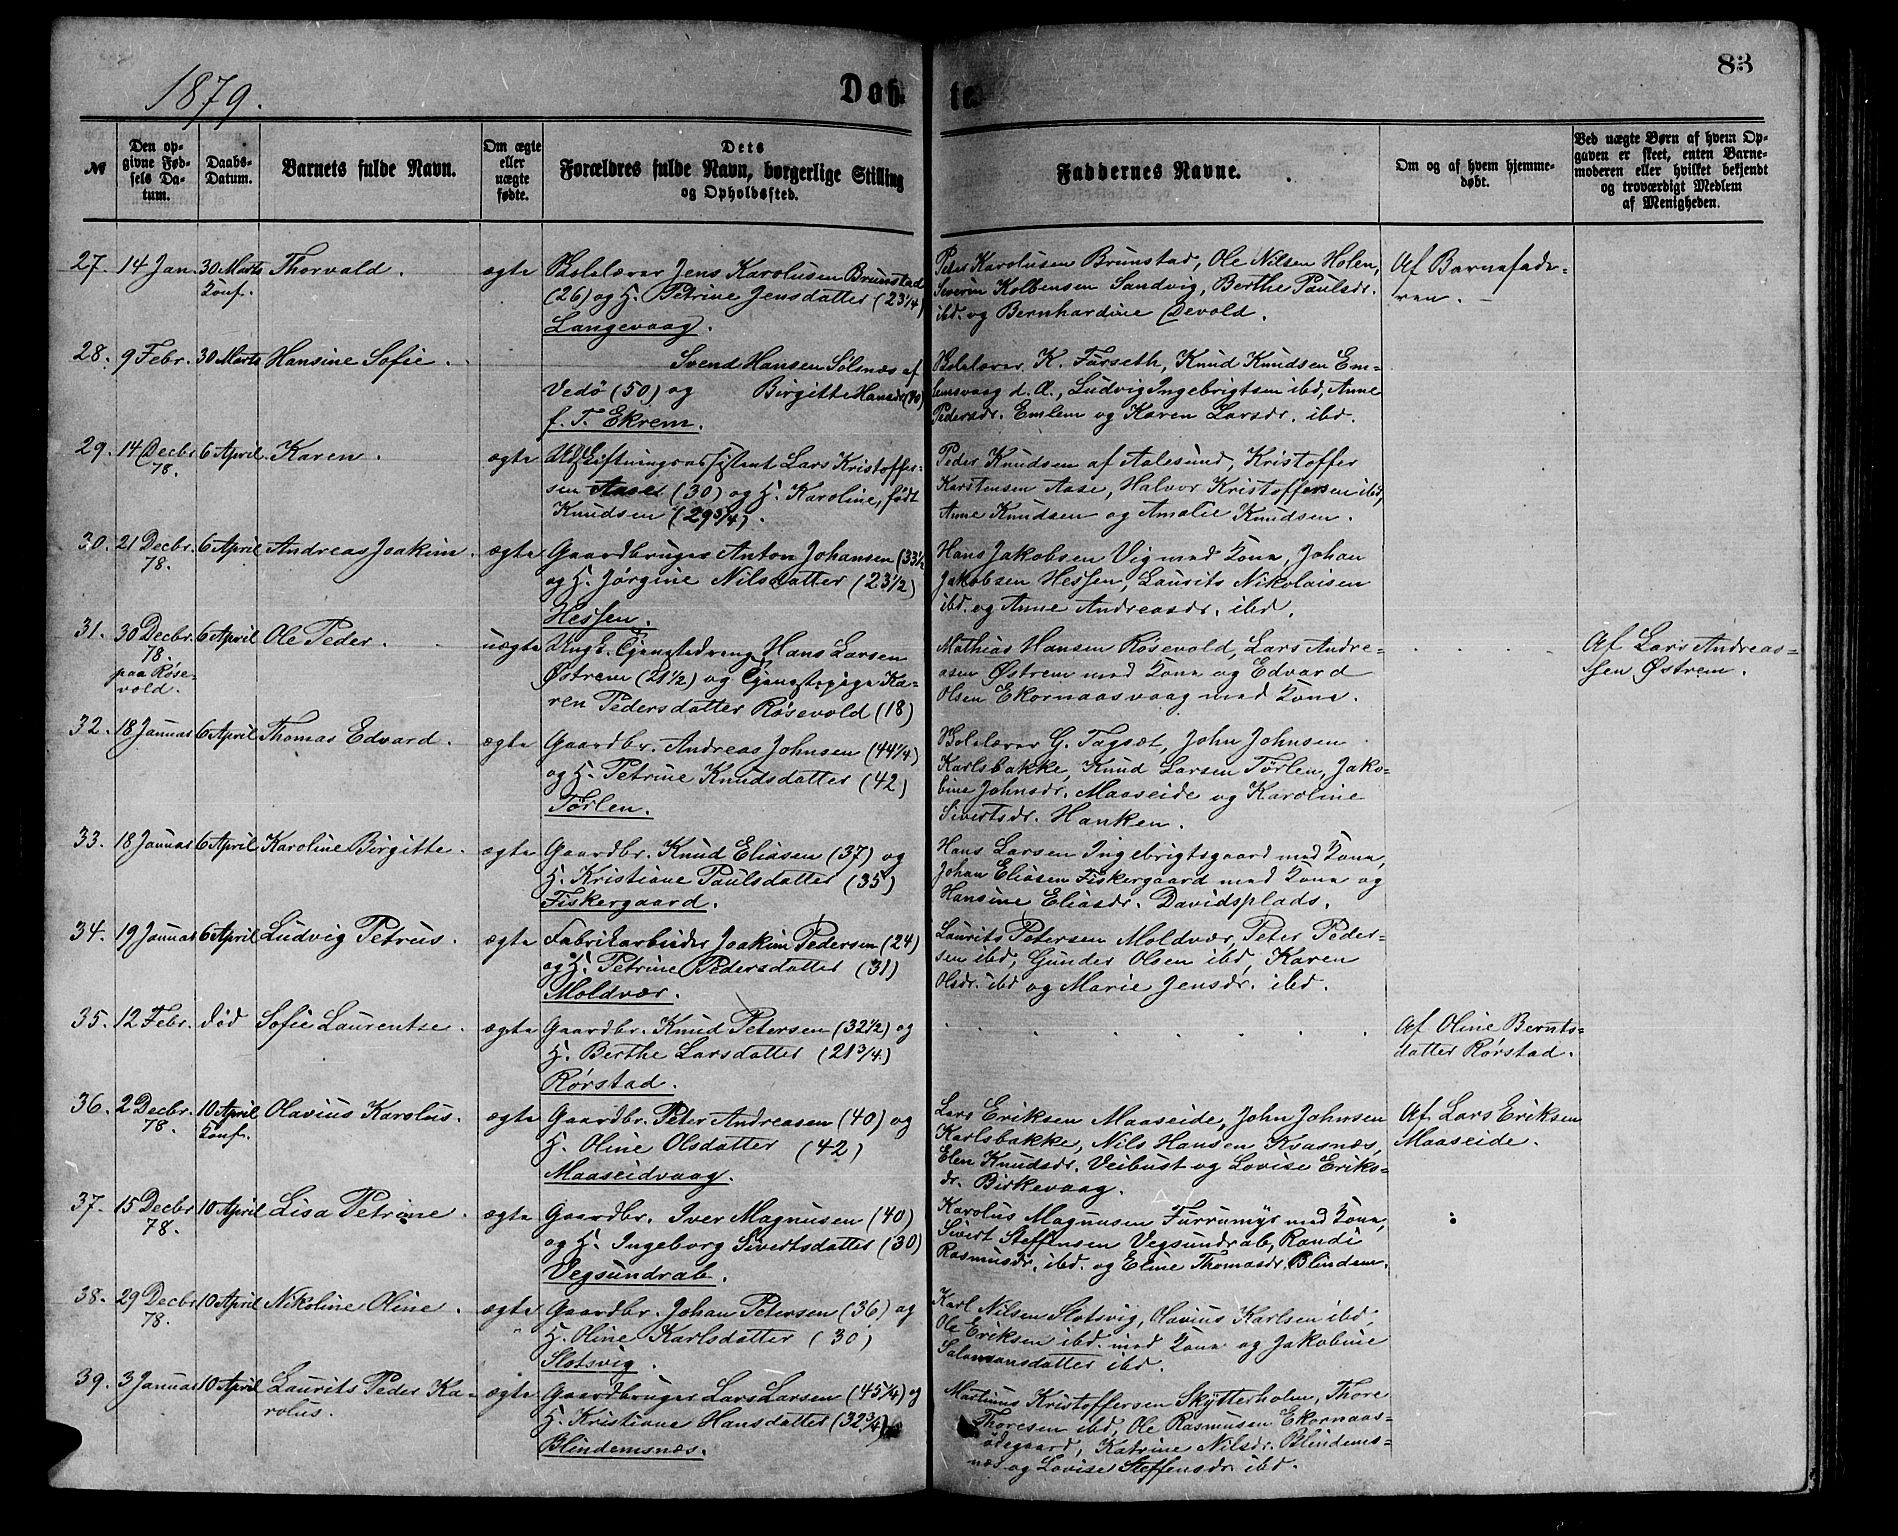 1879.
Døbte.
83
№
Den opgivne Fødsels Datum.
Daabs-Datum.
Barnets fulde Navn.
Om ægte eller uægte fødte.
Dets Forældres fulde Navn, borgerlige Stilling og Opholdssted.
Faddernes Navne.
Om og af hvem hjemmedøbt.
Ved uægte Børn af hvem Opgaven er skeet, enten Barnemoderen eller hvilket bekjendt og troværdigt Medlem af Menigheden.
27. 14 Jan. 30 Marts Thorvald. ægte Skolelærer Jens Karolusen Brunstad
Konf. (26) og H. Petrine Jensdatter (23 1/4)
Langevaag.
Peter Karolusen Brunstad, Ole Nilsen Holen,
Severin Kolbensen Sandvig, Berthe Paulsdr.
ibd. og Bernhardine Devold.
Af Barnefade-
ren.
28. 9 Febr. 30 Marts Hansine Sofie. Svend Hansen Solsnæs af
Vedö (50) og Birgitte Hansdr (40)
f. T. Ekrem.
Skolelærer K. Furseth, Knud Knudsen Em-
lemsvaag d. Æ., Ludvig Ingebrigtsen ibd, Anne
Pedersdr. Emlem og Karen Larsdr. ibd.
29. 14 Decbr 6 April Karen. ægte Udskiftningsassistent Lars Kristoffer-
78. sen Aase (30) og H. Karoline, født
Knudsen (29 3/4).
Peder Knudsen af Aalesund, Kristoffer
Karstensen Aase, Halvor Kristoffersen ibd,
Anne Knudsen og Amalie Knudsen.
30. 21 Decbr. 6 April Andreas Joakim. ægte Gaardbruger Anton Johansen (33 1/2
78. og H. Jörgine Nilsdatter (23 1/2)
Hessen.
Hans Jakobsen Vig med Kone, Johan
Jakobsen Hessen, Laurits Nikolaisen
ibd. og Anne Andreasdr. ibd.
31. 30 Decbr. 6 April Ole Peder. uægte Ungk. Tjenestedreng Hans Larsen
78. Østrem (21 1/2) og Tjenestepige Ka-
paa Röse-
vold. ren Pedersdatter Rösevold (18)
Mathias Hansen Rösevold, Lars Andre-
asen Østrem med Kone og Edvard
Olsen Ekornaasvaag med Kone.
Af Lars Andreas-
sen Østrem.
32. 18 Januar 6 April Thomas Edvard. ægte Gaardbr. Andreas Johnsen (44 1/4)
og H. Petrine Knudsdatter (42)
Törlen.
Skolelærer G. Tagsæt, John Johnsen
Karlsbakke, Knud Larsen Törlen, Jako-
bine Johnsdr. Maaseide og Karoline
Sivertsdr. Hanken.
33. 18 Januar 6 April Karoline Birgitte. ægte Gaardbr. Knud Eliasen (37) og
H. Kristiane Paulsdatter (35)
Fiskergaard.
Hans Larsen Ingebrigtsgaard med Kone,
Johan Eliasen Fiskergaard med Kone og
Hansine Eliasdr. Davidsplads.
34. 19 Januar 6 April Ludvig Petrus. ægte Fabrikarbeider Joakim Pedersen (24)
og H. Petrine Pedersdatter (31)
Moldvær.
Laurits Petersen Moldvær, Peter Peder-
sen ibd, Gunder Olsen ibd, Karen
Olsdr. ibd og Marie Jensdr. ibd.
35. 12 Febr. død Sofie Laurentse. ægte Gaardbr. Knud Petersen (32 1/2) og
H. Berthe Larsdatter (21 3/4.)
Rörstad.
Af Oline Bernts-
datter Rörstad.
36. 2 Decbr. 10 April Olavius Karolus. ægte Gaardbr. Peter Andreasen (40) og
78. Konf. H. Oline Olsdatter (42)
Maaseidvaag.
Lars Eriksen Maaseide, John Johnsen
Karlsbakke, Nils Hansen Kvasnæs,
Elen Knudsdr. Veibust og Lovise Eriks-
dr. Birkevaag.
Af Lars Eriksen
Maaseide.
37. 15 Decbr 10 April Lisa Petrine. ægte Gaardbr. Iver Magnusen (40)
78. og H. Ingeborg Sivertsdatter (30)
Vegsundrab.
Karolus Magnusen Furrumyr med Kone,
Sivert Steffensen Vegsundrab, Randi
Rasmusdr. ibd. og Eline Thomasdr. Blindem.
38. 29 Decbr 10 April Nikoline Oline. ægte Gaardbr. Johan Petersen (36) og
78. H. Oline Karlsdatter (30)
Slotsvig.
Karl Nilsen Slotsvig, Olavius Karlsen ibd,
Ole Eriksen ibd. med Kone og Jakobine
Salomonsdatter ibd.
39. 3 Januar 10 April Laurits Peder Ka- ægte Gaardbruger Lars Larsen (45 1/4) og
rolus. H. Kristiane Hansdatter (32 3/4)
Blindemsnæs.
Martinus Kristoffersen Skytterholm, Thore
Thoresen ibd, Ole Rasmusen Ekornaas-
ødegaard, Katrine Nilsdr. Blindems-
næs og Lovise Steffensdr. ibd.